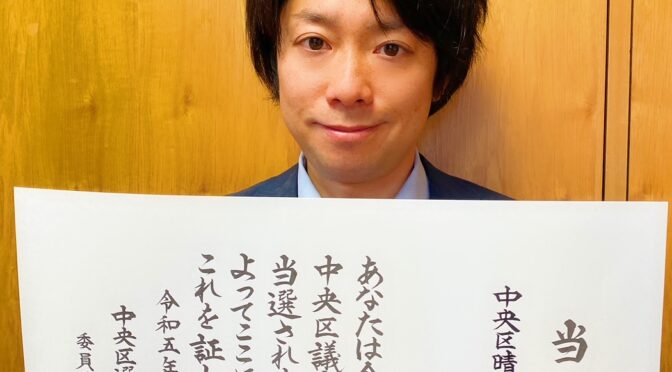 当
中央区晴
あなたは
中央区議
当選された
よってここに
これを証
令和五年
中央区選
委員